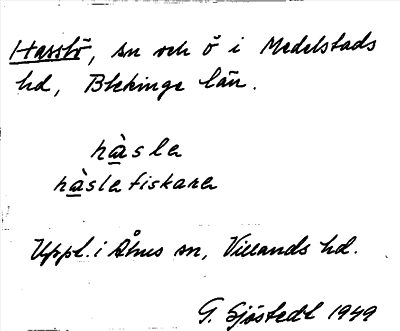 Hasslö, sn och ö i Medelstads
hd, Blekinge län.
hàsle
hàslefiskare
Uppl. i Åhus sn, Villands hd.
G. Sjöstedt 1949